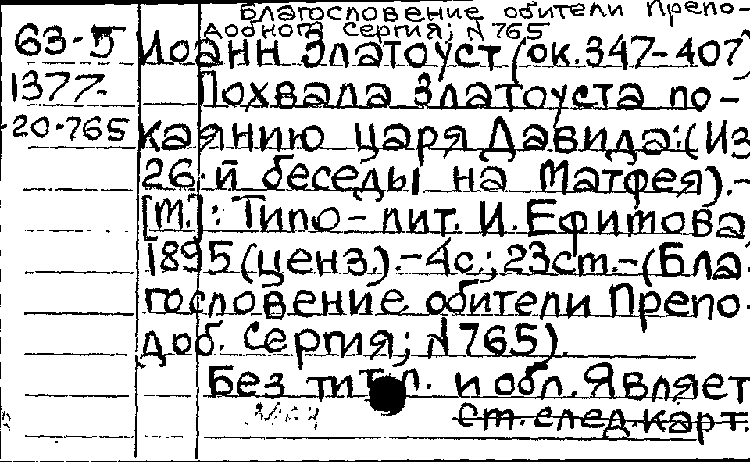 Благословение обители Препо-
добного Сергия; N 765
63-5 Иоанн Златоуст (ок.347-407)
1377- Похвала Златоуста по-
20-765 каянию царя Давида: (Из
26-й беседы на Матфея).-
[М.]: Типо-лит. И. Ефимова
1895 (ценз.).-4с.; 23см.-(Бла-
гословение обители Препо-
доб. Сергия; N765).
Без тит. л. и обл. Являет
ст. след. карт.